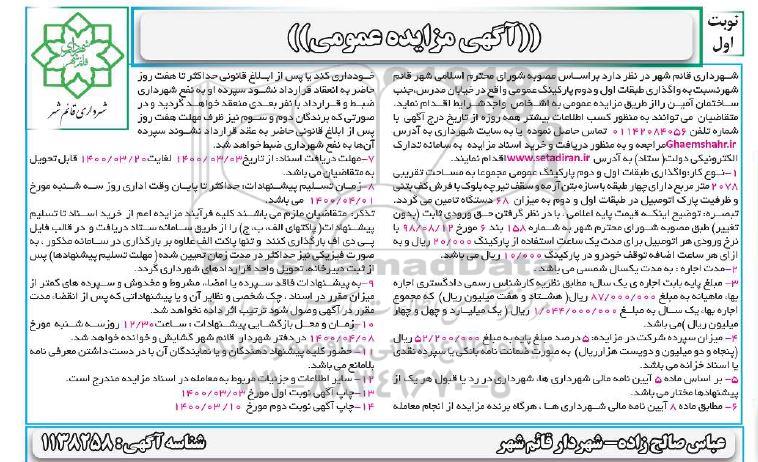 نوبت
اول
((آگهی مزایده عمومی))
شهرداری قائم شهر
شهرداری قائم شهر در نظر دارد براساس مصوبه شورای محترم اسلامی شهر قائم
شهر نسبت به واگذاری طبقات اول و دوم پارکینگ عمومی واقع در خیابان مدرس، جنب
ساختمان آمین را از طریق مزایده عمومی به اشخاص واجد شرایط اقدام نماید.
متقاضیان می توانند به منظور کسب اطلاعات بیشتر همه روزه از تاریخ درج آگهی با
شماره تلفن ۰۱۱۴۲۰۸۴۰۵۶ تماس حاصل نموده یا به سایت شهرداری به آدرس
Ghaemshahr.ir مراجعه و به منظور دریافت و خرید اسناد مزایده به سامانه تدارک
الکترونیکی دولت( ستاد) به آدرس www.setadiran.ir اقدام نمایند.
۱-نوع کار:واگذاری طبقات اول و دوم پارکینگ عمومی مجموعا به مساحت تقریبی
۲۰۷۸ متر مربع دارای چهار طبقه با سازه بتن آرمه و سقف تیرچه بلوک با فرش کف بتنی
و ظرفیت پارک اتومبیل در طبقات اول و دوم به میزان ۶۸ دستگاه تامین می گردد.
تبصره: توضیح اینکه قیمت پایه اعلامی، با در نظر گرفتن حق ورودی ثابت (بدون
تغییر) طبق مصوبه شورای محترم شهر به شماره ۱۵۸ بند ۶ مورخ ۹۸/۰۸/۱۲ با
نرخ ورودی هر اتومبیل برای مدت یک ساعت استفاده از پارکینگ ۲۰/۰۰۰ ریال و به
ازای هر ساعت اضافه توقف خودرو در پارکینگ ۱۰/۰۰۰ ریال می باشد.
۲-مدت اجاره : به مدت یکسال شمسی می باشد.
۳- مبلغ پایه بابت اجاره ی یک سال: مطابق نظریه کارشناس رسمی دادگستری اجاره
بها، ماهیانه به مبلغ ۸۷/۰۰۰/۰۰۰ ریال( هشتاد و هفت میلیون ریال) که مجموع
اجاره بها، یک سال به مبلغ ۱/۰۴۴/۰۰۰/۰۰۰ ریال ( یک میلیارد و چهل و چهار
میلیون ریال )می باشد.
۴- میزان سپرده شرکت در مزایده: ۵ درصد مبلغ پایه به مبلغ ۵۲/۲۰۰/۰۰۰ ریال
(پنجاه و دو میلیون و دویست هزار ریال) به صورت ضمانت نامه بانکی یا سپرده نقدی
یا اسناد خزانه می باشد.
۵- بر اساس ماده ۵ آیین نامه مالی شهرداری ها، شهرداری در رد یا قبول هر یک از
پیشنهادها مختار می باشد.
۶- مطابق ماده ۸ آیین نامه مالی شهرداری ها ، هرگاه برنده مزایده از انجام معامله
خودداری کند یا پس از ابلاغ قانونی حداکثر تا هفت روز
حاضر به انعقاد قرارداد نشود سپرده او به نفع شهرداری
ضبط و قرارداد با نفر بعدی منعقد خواهد گردید و در
صورتی که برندگان دوم و سوم نیز ظرف مهلت هفت روز
پس از ابلاغ قانونی حاضر به عقد قرارداد نشوند سپرده
آن‌ها به نفع شهرداری ضبط خواهد شد.
۷-مهلت دریافت اسناد: از تاریخ ۱۴۰۰/۰۳/۰۳ لغایت ۱۴۰۰/۰۳/۲۰ قابل تحویل
به متقاضیان می باشد.
۸-زمان تسلیم پیشنهادات: حداکثر تا پایان وقت اداری روز سه شنبه مورخ
۱۴۰۰/۰۴/۰۱ می باشد.
تذکر: متقاضیان ملزم می باشند کلیه فرآیند مزایده اعم از خرید اسناد تا تسلیم
پیشنهادات( پاکتهای الف، ب، ج) را از طریق سامانه ستاد دریافت و در قالب فایل
پی دی اف بارگذاری کنند و تنها پاکت الف علاوه بر بارگذاری در سامانه مذکور ، به
صورت فیزیکی نیز حداکثر در مدت زمان تعیین شده( مهلت تسلیم پیشنهادها) پس
از ثبت دبیرخانه، تحویل واحد قراردادهای شهرداری گردد.
۹-به پیشنهادات فاقد سپرده یا امضاء، مشروط و مخدوش و سپرده های کمتر از
میزان مقرر در اسناد . چک شخصی و نظایر آن و یا پیشنهاداتی که پس از انقضاء، مدت
مقرر در آگهی وصول شود ترتیب اثر داده نخواهد شد.
۱۰-زمان و محل بازگشایی پیشنهادات : ساعت ۱۲/۳۰ روز سه شنبه مورخ
۱۴۰۰/۰۴/۰۸ در دفتر شهردار قائم شهر گشایش و خوانده خواهد شد.
۱۱- حضور کلیه پیشنهاد دهندگان و یا نمایندگان آن با در دست داشتن معرفی نامه
بلامانع می باشد.
۱۲- سایر اطلاعات و جزئیات مربوط به معامله در اسناد مزایده مندرج است.
۱۳-چاپ آگهی نوبت اول مورخ ۱۴۰۰/۰۳/۰۳
۱۴-چاپ آگهی نوبت دوم مورخ ۱۴۰۰/۰۳/۱۰
عباس صالح زاده – شهردار قائم شهر
شناسه آگهی: ۱۱۳۸۲۵۸